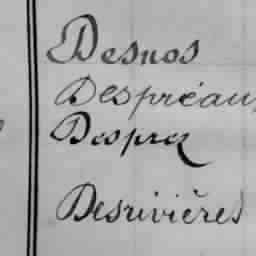 Desnos
Despréau
Desprez
Desrivières